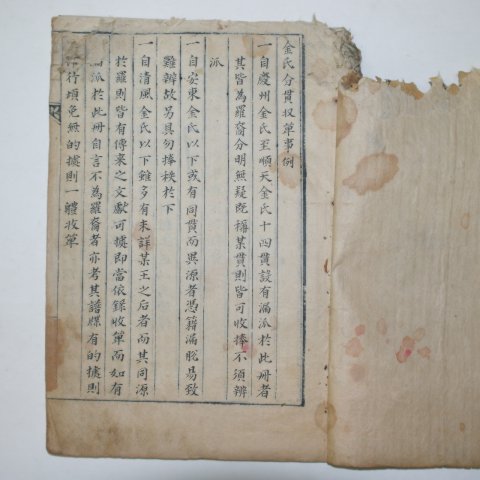 金氏分貫収單事例
一自慶州金氏至順天金氏十四貫設有漏派於此册者
其皆為羅裔分明無疑既稱某貫則皆可收捧不須辨
派
一自安東金氏以下或有同貫而異源者憑籍漏脱易致
難辨故另具勿捧秩於下
一自清風金氏以下雖多有未詳某王之后者而其同源
於羅則皆有傳来之文獻可據即當依錄收單而如有
漏派於此册自言不為羅裔者亦考其譜牒有的據則
行頃免無的據則一體收單